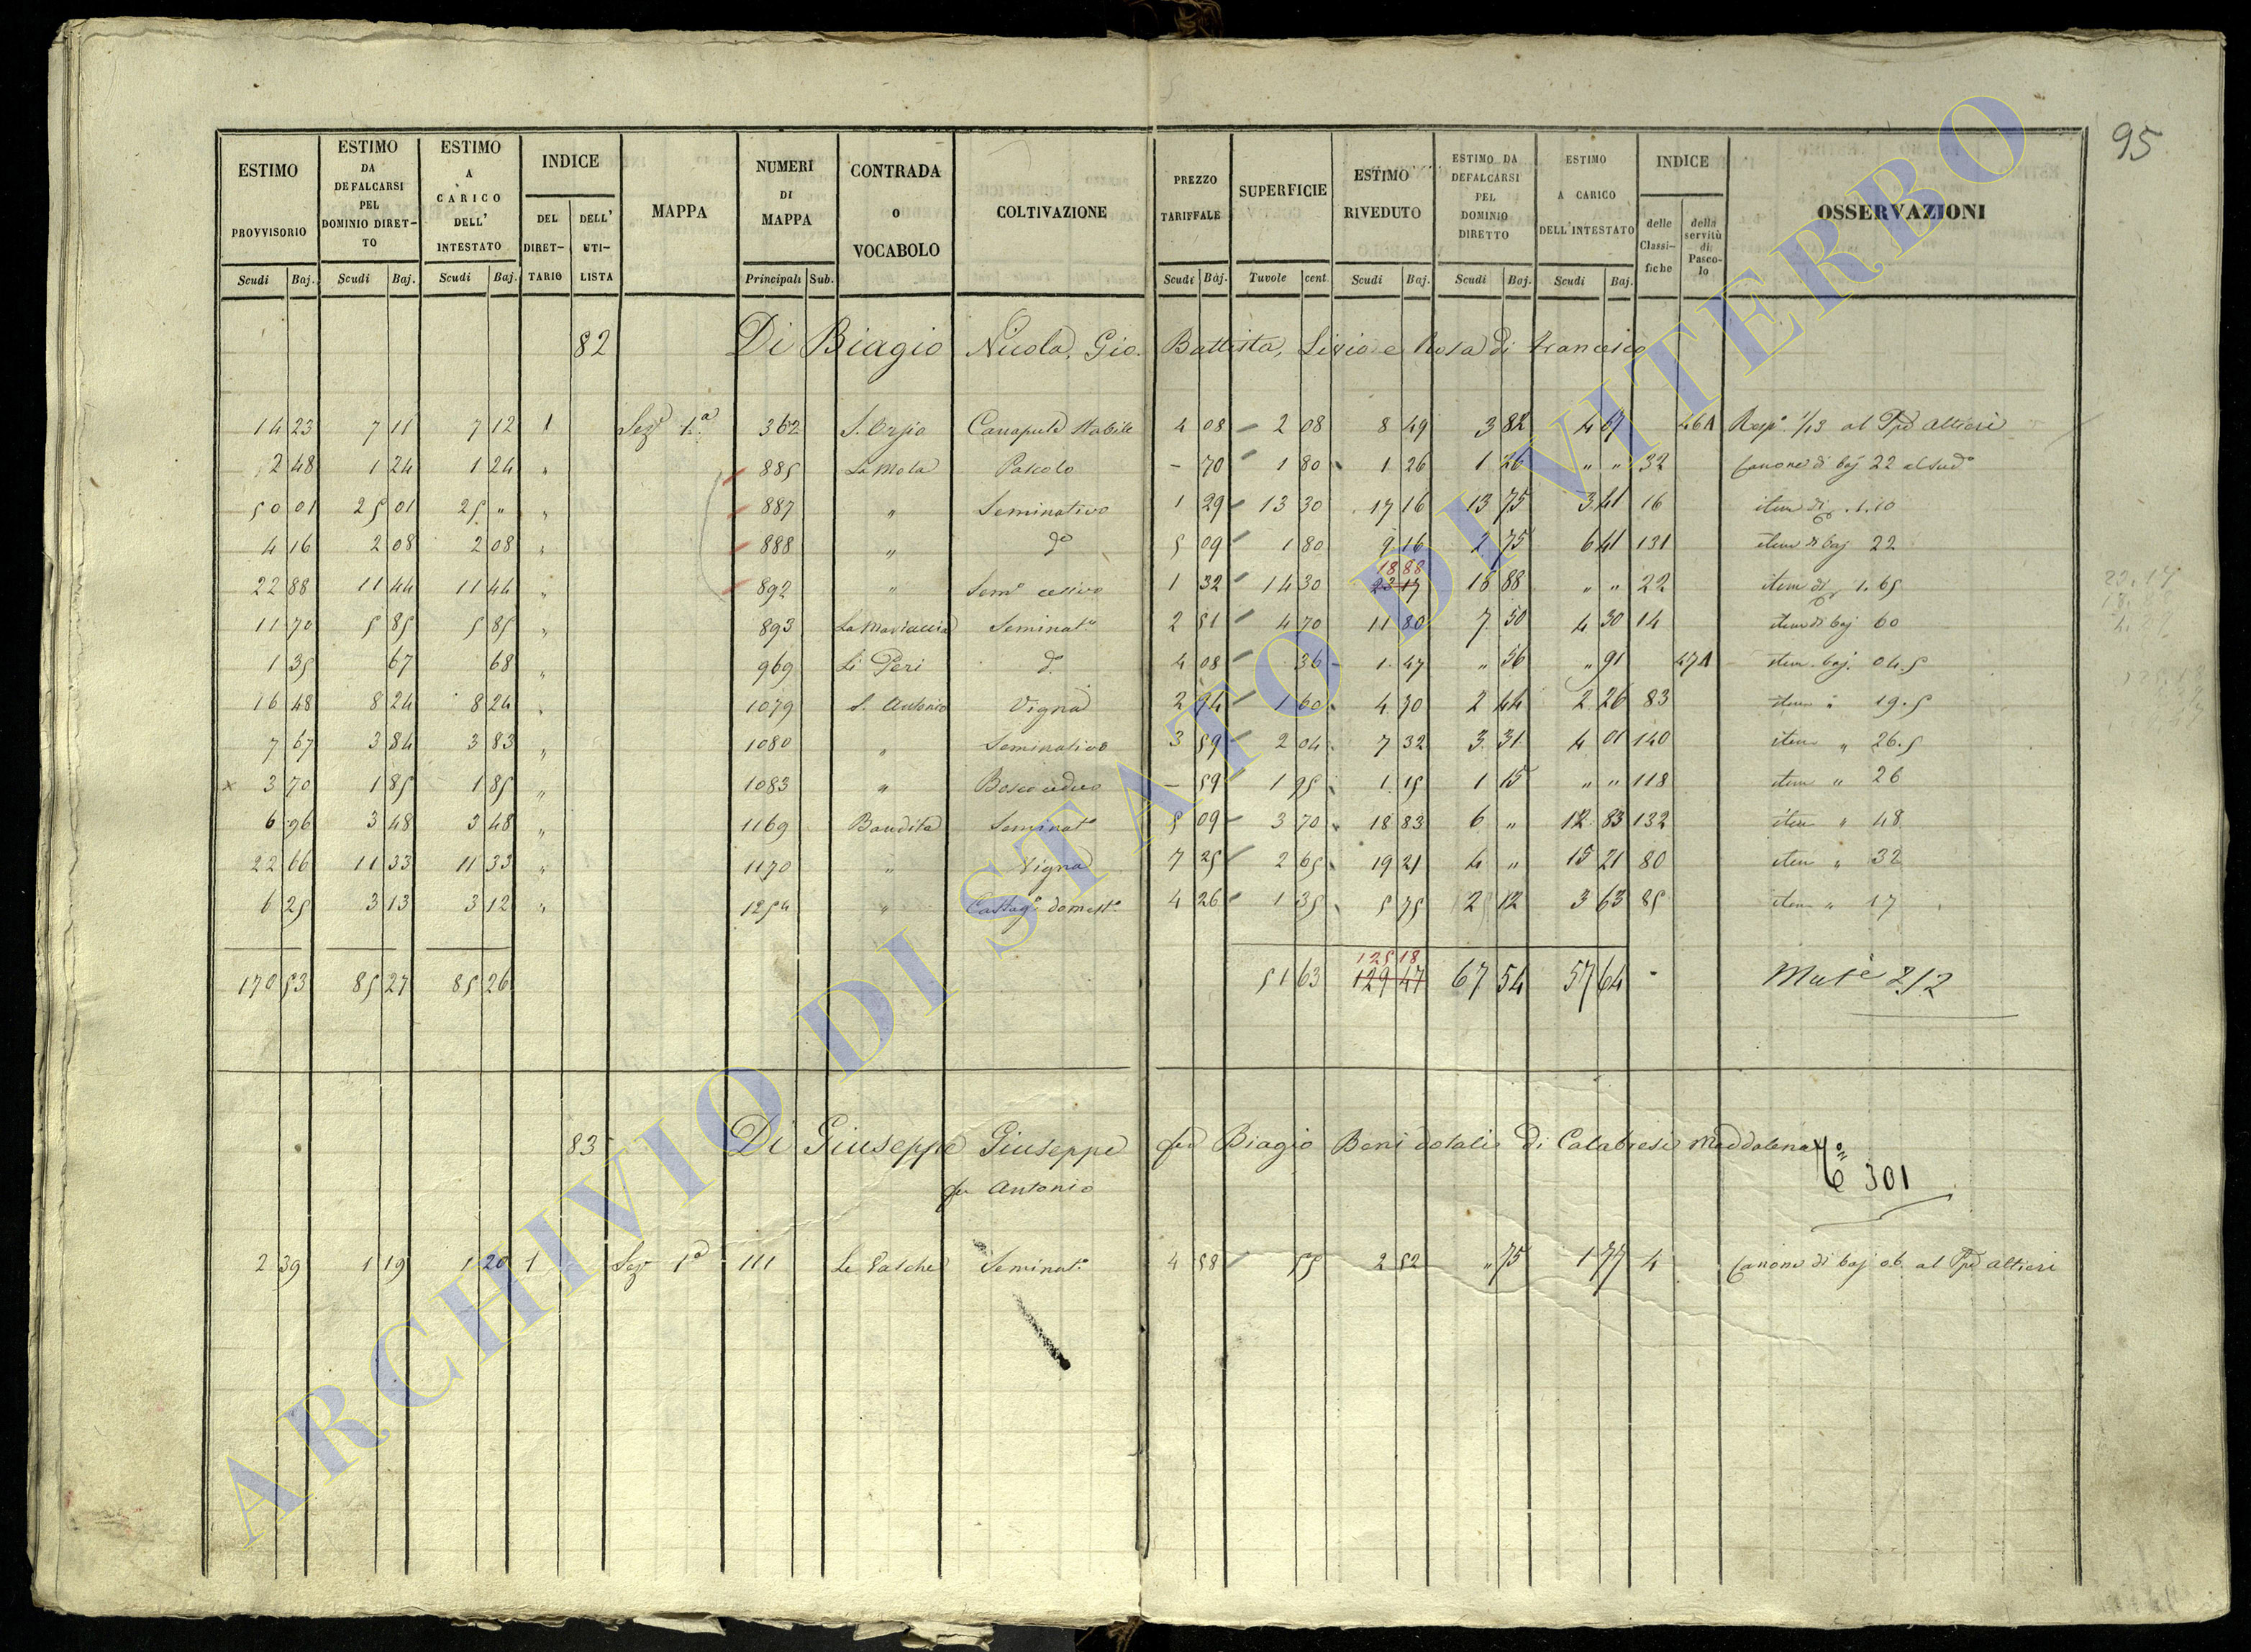 95
ESTIMO PROVVISORIO | ESTIMO DA DEFALCARSI PEL DOMINIO DIRETTO | ESTIMO A CARICO DELL' INTESTATO | INDICE DEL DIRETTARIO | DELL' UTILISTA | MAPPA | NUMERI DI MAPPA | CONTRADA o VOCABOLO | COLTIVAZIONE | PREZZO TARIFFALE | SUPERFICIE | ESTIMO RIVEDUTO | ESTIMO DA DEFALCARSI PEL DOMINIO DIRETTO | ESTIMO A CARICO DELL'INTESTATO | INDICE delle Classifiche | della servitù di Pascolo | OSSERVAZIONI
Scudi Baj. | Scudi Baj. | Scudi Baj. | Principali Sub. | Scudi Baj. | Tavole cent. | Scudi Baj. | Scudi Baj. | Scudi Baj.
82 Di Biagio Nicola, Gio. Battista, Livio e Rosa di Francesco
14 23 | 7 11 | 7 12 | 1 | Sez. 1.a | 362 | Canapule stabile | 4 08 | 2 08 | 8 49 | 3 82 | 4 67 | 46A | Risp. 1/13 al Altieri
2 48 | 1 24 | 1 24 | " | 885 | La Mola | Pascolo | - 70 | 1 80 | 1 26 | 1 26 | " " | 32 | Canone di baj 22 al sud.o
50 01 | 25 01 | 25 " | " | 887 | " | Seminativo | 1 29 | 13 30 | 17 16 | 13 75 | 3 41 | 16 | item di 1.10
4 16 | 2 08 | 2 08 | " | 888 | " | d.o | 5 09 | 1 80 | 9 16 | 2 75 | 6 41 | 131 | item di baj 22
22 88 | 11 44 | 11 44 | " | 892 | " | Sem.o | 1 32 | 14 30 | 18 88 | 18 88 | " " | 22 | item di 1.65
11 70 | 5 85 | 5 85 | " | 893 | Seminat.o | 2 51 | 4 70 | 11 80 | 7 50 | 4 30 | 14 | item di baj 60
1 35 | 67 | 68 | " | 969 | Li Peri | d.o | 4 08 | 36 | 1 47 | " 56 | " 91 | 47A | item baj. 04.5
16 48 | 8 24 | 8 24 | " | 1079 | S. Antonio | Vigna | 2 94 | 1 60 | 4 70 | 2 44 | 2 26 | 83 | item " 19.5
7 67 | 3 84 | 3 83 | " | 1080 | " | Seminativo | 3 59 | 2 04 | 7 32 | 3 31 | 4 01 | 140 | item " 26.5
x 3 70 | 1 85 | 1 85 | " | 1083 | " | Bosco ceduo | - 59 | 1 95 | 1 15 | 1 15 | " " | 118 | item " 26
6 96 | 3 48 | 3 48 | " | 1169 | Bandita | Seminat.o | 5 09 | 3 70 | 18 83 | 6 " | 12 83 | 132 | item " 48
22 66 | 11 33 | 11 33 | " | 1170 | " | Vigna | 7 25 | 2 65 | 19 21 | 4 " | 15 21 | 80 | item " 32
6 25 | 3 13 | 3 12 | " | 1254 | " | Castag.o domest.o | 4 26 | 1 35 | 5 75 | 2 12 | 3 63 | 85 | item " 17
125 18
170 53 | 85 27 | 85 26 | 51 63 | 129 47 | 67 54 | 57 64
83 Di Giuseppe Giuseppe fu Biagio Beni dotali di Calabresi Maddalena
fu Antonio
301
2 39 | 1 19 | 1 20 | 1 | Sez. 1.a | 111 | Seminat.o | 4 58 | 55 | 2 52 | " 75 | 1 77 | 4 | Canone di baj 06 al Altieri
ARCHIVIO DI STATO DI VITERBO